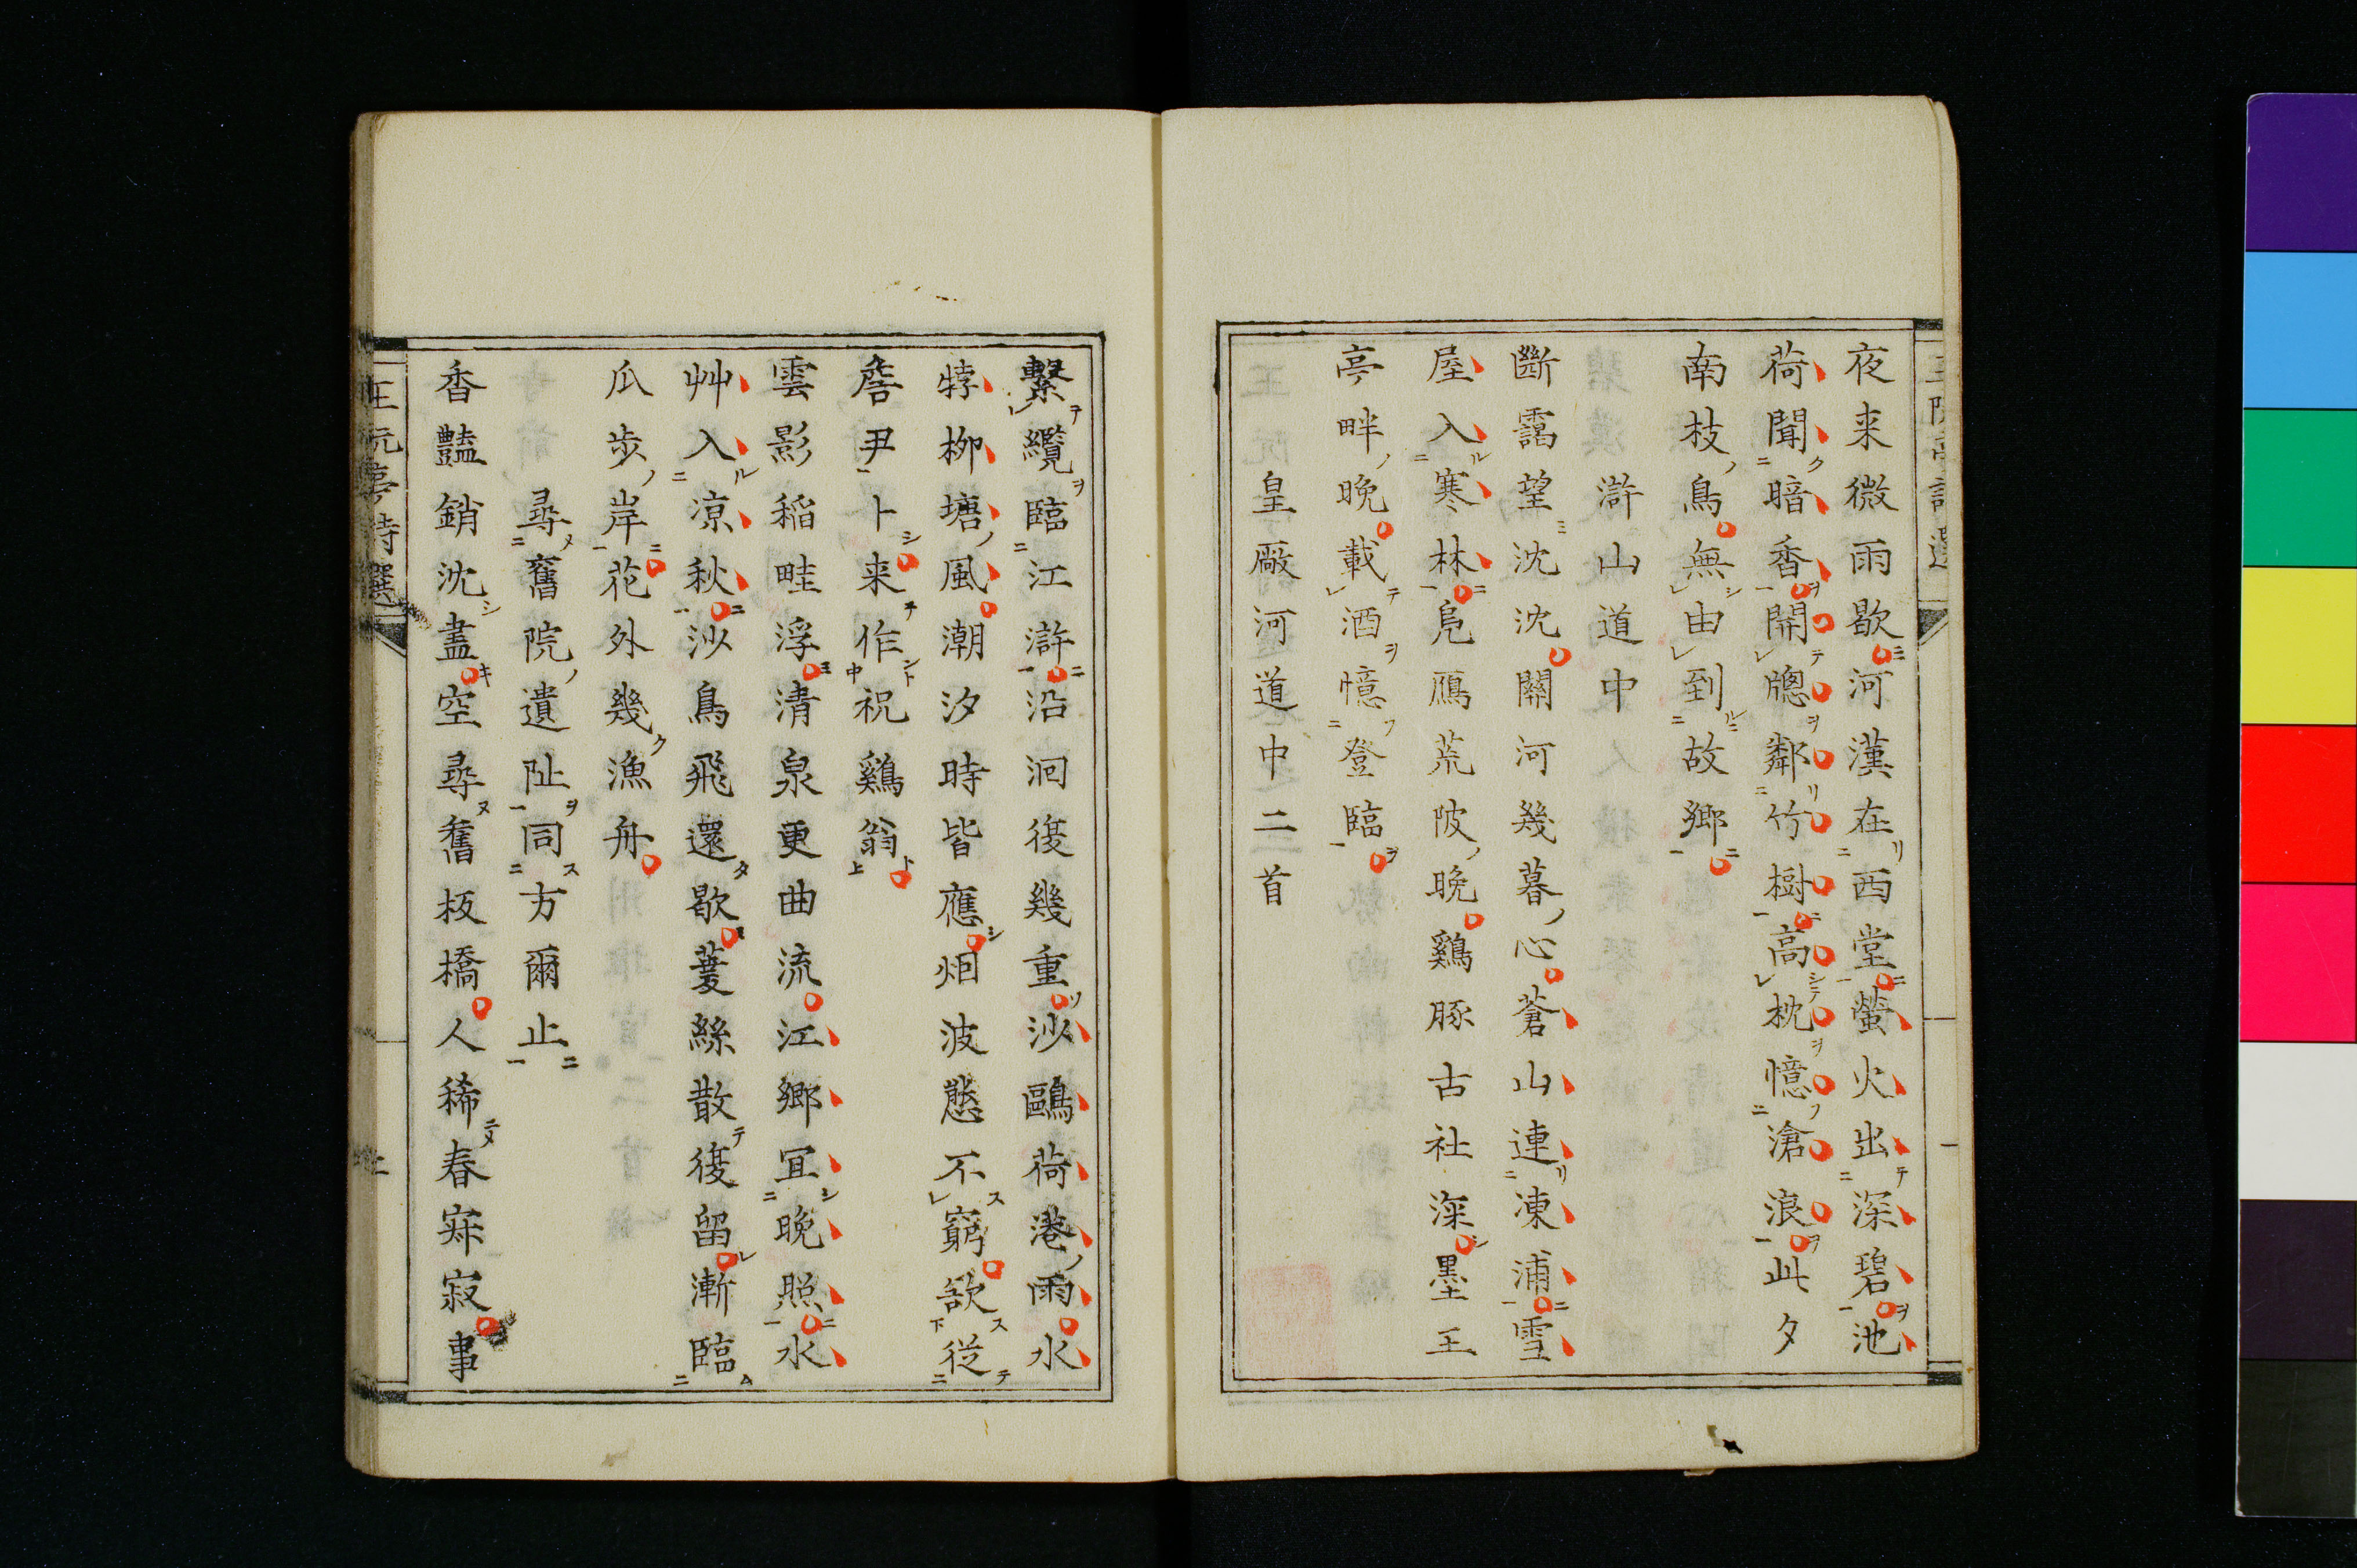 夜来微雨歇河漢在西堂螢火出深碧池
荷聞暗香開牕鄰竹樹高枕憶滄浪此夕
南枝鳥無由到故鄉
滸山道中
斷靄望沈沈關河幾暮心蒼山連凍浦雪
屋入寒林鳧鴈荒陂晚鷄豚古社深墨王
亭畔晚載酒憶登臨
皇廠河道中二首
繫纜臨江滸沿洄復幾重沙鷗荷港雨水
牸柳塘風潮汐時皆應烟波態不窮欲從
詹尹卜来作祝鷄翁
雲影稲畦浮清泉更曲流江鄉宜晚照水
艸入凉秋沙鳥飛還歇菱絲散復留漸臨
瓜步岸花外幾漁舟
尋舊院遺阯同方爾止
香豔銷沈盡空尋舊板橋人稀春寂寂事
王阮亭詩選